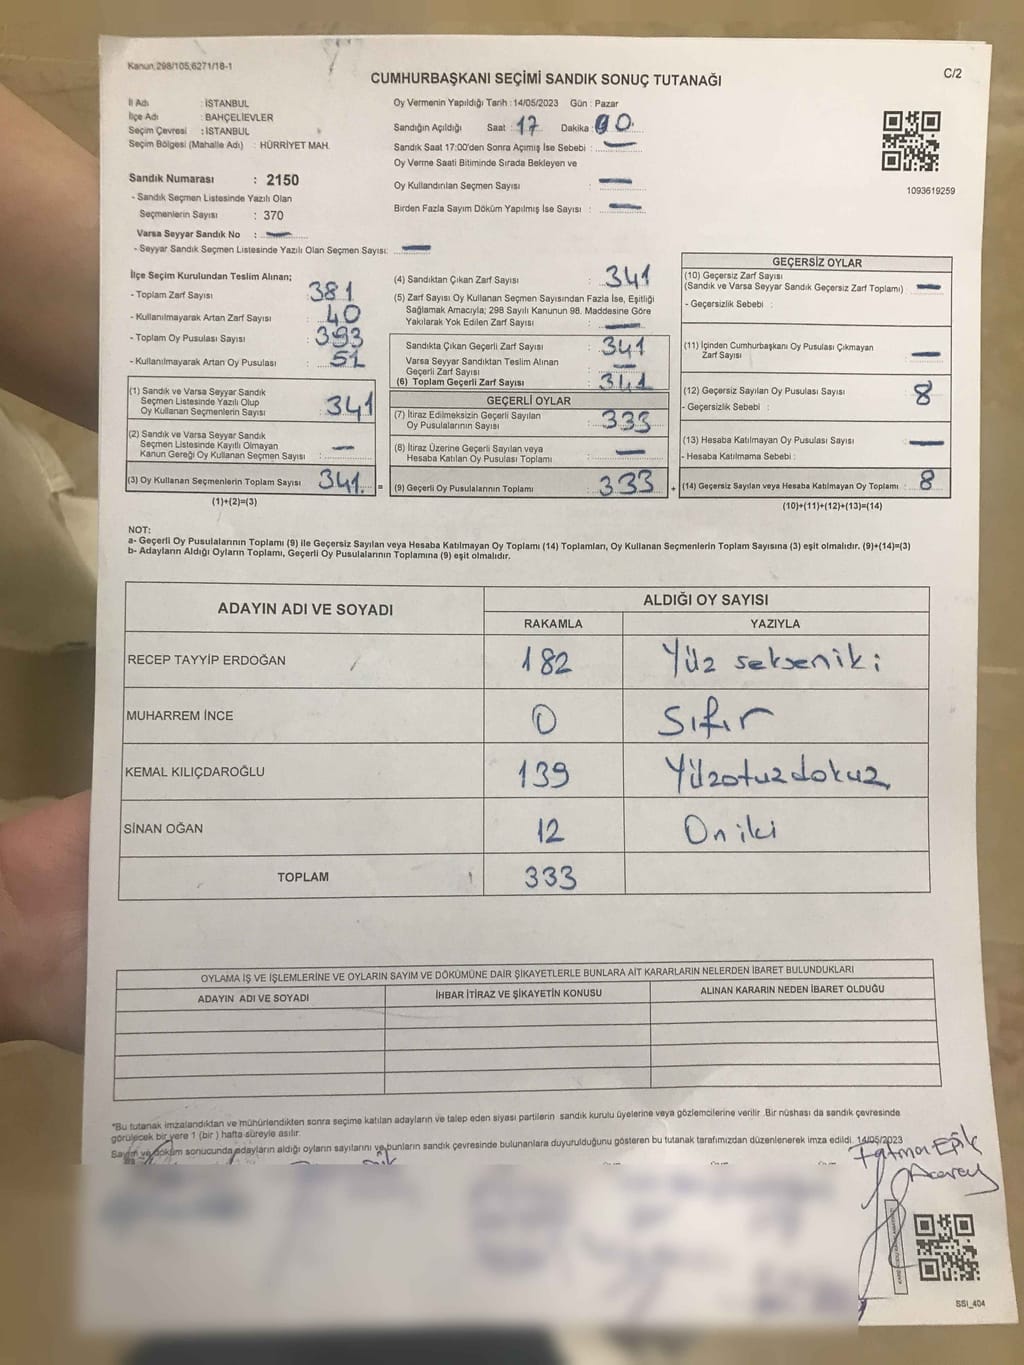 Kanun,298/105,6271/18-1
C/2
CUMHURBAŞKANI SEÇİMİ SANDIK SONUÇ TUTANAĞI
İl Adı : İSTANBUL
İlçe Adı : BAHÇELİEVLER
Seçim Çevresi : İSTANBUL
Seçim Bölgesi (Mahalle Adı) : HÜRRİYET MAH.
Sandık Numarası : 2150
- Sandık Seçmen Listesinde Yazılı Olan
Seçmenlerin Sayısı : 370
Varsa Seyyar Sandık No : —
- Seyyar Sandık Seçmen Listesinde Yazılı Olan Seçmen Sayısı: —
Oy Vermenin Yapıldığı Tarih : 14/05/2023 Gün : Pazar
Sandığın Açıldığı Saat : 17 Dakika : 00
Sandık Saat 17:00'den Sonra Açılmış İse Sebebi : —
Oy Verme Saati Bitiminde Sırada Bekleyen ve
Oy Kullandırılan Seçmen Sayısı : —
Birden Fazla Sayım Döküm Yapılmış İse Sayısı : —
1093619259
İlçe Seçim Kurulundan Teslim Alınan;
- Toplam Zarf Sayısı : 381
- Kullanılmayarak Artan Zarf Sayısı : 40
- Toplam Oy Pusulası Sayısı : 393
- Kullanılmayarak Artan Oy Pusulası : 51
(1) Sandık ve Varsa Seyyar Sandık
Seçmen Listesinde Yazılı Olup
Oy Kullanan Seçmenlerin Sayısı : 341
(2) Sandık ve Varsa Seyyar Sandık
Seçmen Listesinde Kayıtlı Olmayan
Kanun Gereği Oy Kullanan Seçmen Sayısı : —
(3) Oy Kullanan Seçmenlerin Toplam Sayısı 341 =
(1)+(2)=(3)
(4) Sandıktan Çıkan Zarf Sayısı : 341
(5) Zarf Sayısı Oy Kullanan Seçmen Sayısından Fazla İse, Eşitliği
Sağlamak Amacıyla; 298 Sayılı Kanunun 98. Maddesine Göre
Yakılarak Yok Edilen Zarf Sayısı : —
Sandıkta Çıkan Geçerli Zarf Sayısı : 341
Varsa Seyyar Sandıktan Teslim Alınan
Geçerli Zarf Sayısı : —
(6) Toplam Geçerli Zarf Sayısı : 341
GEÇERLİ OYLAR
(7) İtiraz Edilmeksizin Geçerli Sayılan
Oy Pusulalarının Sayısı : 333
(8) İtiraz Üzerine Geçerli Sayılan veya
Hesaba Katılan Oy Pusulası Toplamı : —
(9) Geçerli Oy Pusulalarının Toplamı : 333 +
GEÇERSİZ OYLAR
(10) Geçersiz Zarf Sayısı
(Sandık ve Varsa Seyyar Sandık Geçersiz Zarf Toplamı) : —
- Geçersizlik Sebebi :
(11) İçinden Cumhurbaşkanı Oy Pusulası Çıkmayan
Zarf Sayısı : —
(12) Geçersiz Sayılan Oy Pusulası Sayısı : 8
- Geçersizlik Sebebi :
(13) Hesaba Katılmayan Oy Pusulası Sayısı : —
- Hesaba Katılmama Sebebi :
(14) Geçersiz Sayılan veya Hesaba Katılmayan Oy Toplamı : 8
(10)+(11)+(12)+(13)=(14)
NOT:
a- Geçerli Oy Pusulalarının Toplamı (9) ile Geçersiz Sayılan veya Hesaba Katılmayan Oy Toplamı (14) Toplamları, Oy Kullanan Seçmenlerin Toplam Sayısına (3) eşit olmalıdır. (9)+(14)=(3)
b- Adayların Aldığı Oyların Toplamı, Geçerli Oy Pusulalarının Toplamına (9) eşit olmalıdır.
ADAYIN ADI VE SOYADI
ALDIĞI OY SAYISI
RAKAMLA YAZIYLA
RECEP TAYYİP ERDOĞAN 182 Yüz sekseniki
MUHARREM İNCE 0 Sıfır
KEMAL KILIÇDAROĞLU 139 Yüzotuzdokuz
SİNAN OĞAN 12 Oniki
TOPLAM 333
OYLAMA İŞ VE İŞLEMLERİNE VE OYLARIN SAYIM VE DÖKÜMÜNE DAİR ŞİKAYETLERLE BUNLARA AİT KARARLARIN NELERDEN İBARET BULUNDUKLARI
ADAYIN ADI VE SOYADI İHBAR İTİRAZ VE ŞİKAYETİN KONUSU ALINAN KARARIN NEDEN İBARET OLDUĞU
*Bu tutanak imzalandıktan ve mühürlendikten sonra seçime katılan adayların ve talep eden siyasi partilerin sandık kurulu üyelerine veya gözlemcilerine verilir .Bir nüshası da sandık çevresinde
görülecek bir yere 1 (bir ) hafta süreyle asılır.
Sayım ve döküm sonucunda adayların aldığı oyların sayılarını ve bunların sandık çevresinde bulunanlara duyurulduğunu gösteren bu tutanak tarafımızdan düzenlenerek imza edildi. 14/05/2023
Fatma Epik
SSI_404